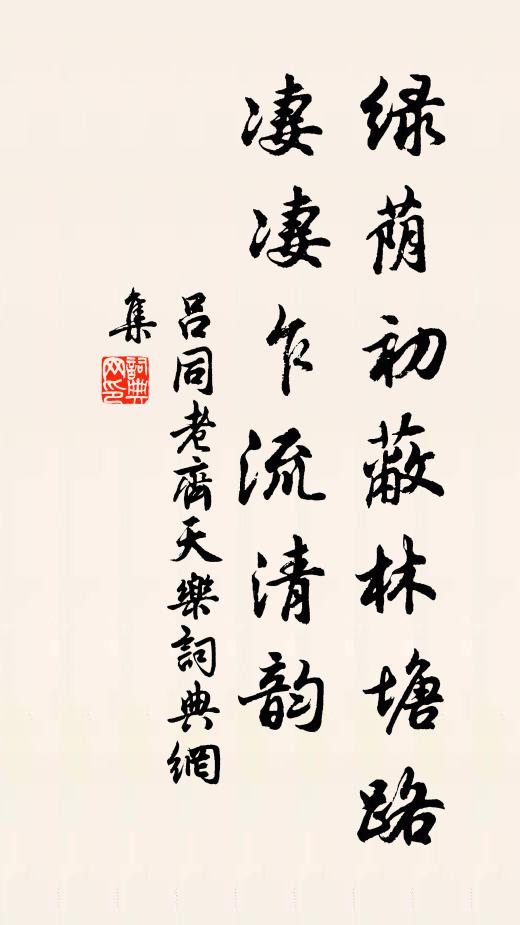 绿荫初蔽林塘路
凄凄乍流清韵
吕同老齊天樂詞典網
集
詞典网印